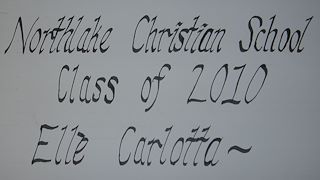 Northlake Christian School
Class of 2010
Elle Carlotta~